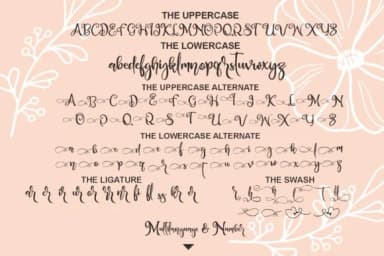 THE UPPERCASE
ABCDEFGHIJKLMNOPQRSTUVWXYZ
THE LOWERCASE
abcdefghijklmnopqrstuvwxyz
THE UPPERCASE ALTERNATE
A B C D E F G H I J K L M N
O P Q R S T U V W X Y Z
THE LOWERCASE ALTERNATE
a b c d e f g h i j k l m
n o p q r s t u v w x y z
THE LIGATURE
THE SWASH
Multilanguage & Number